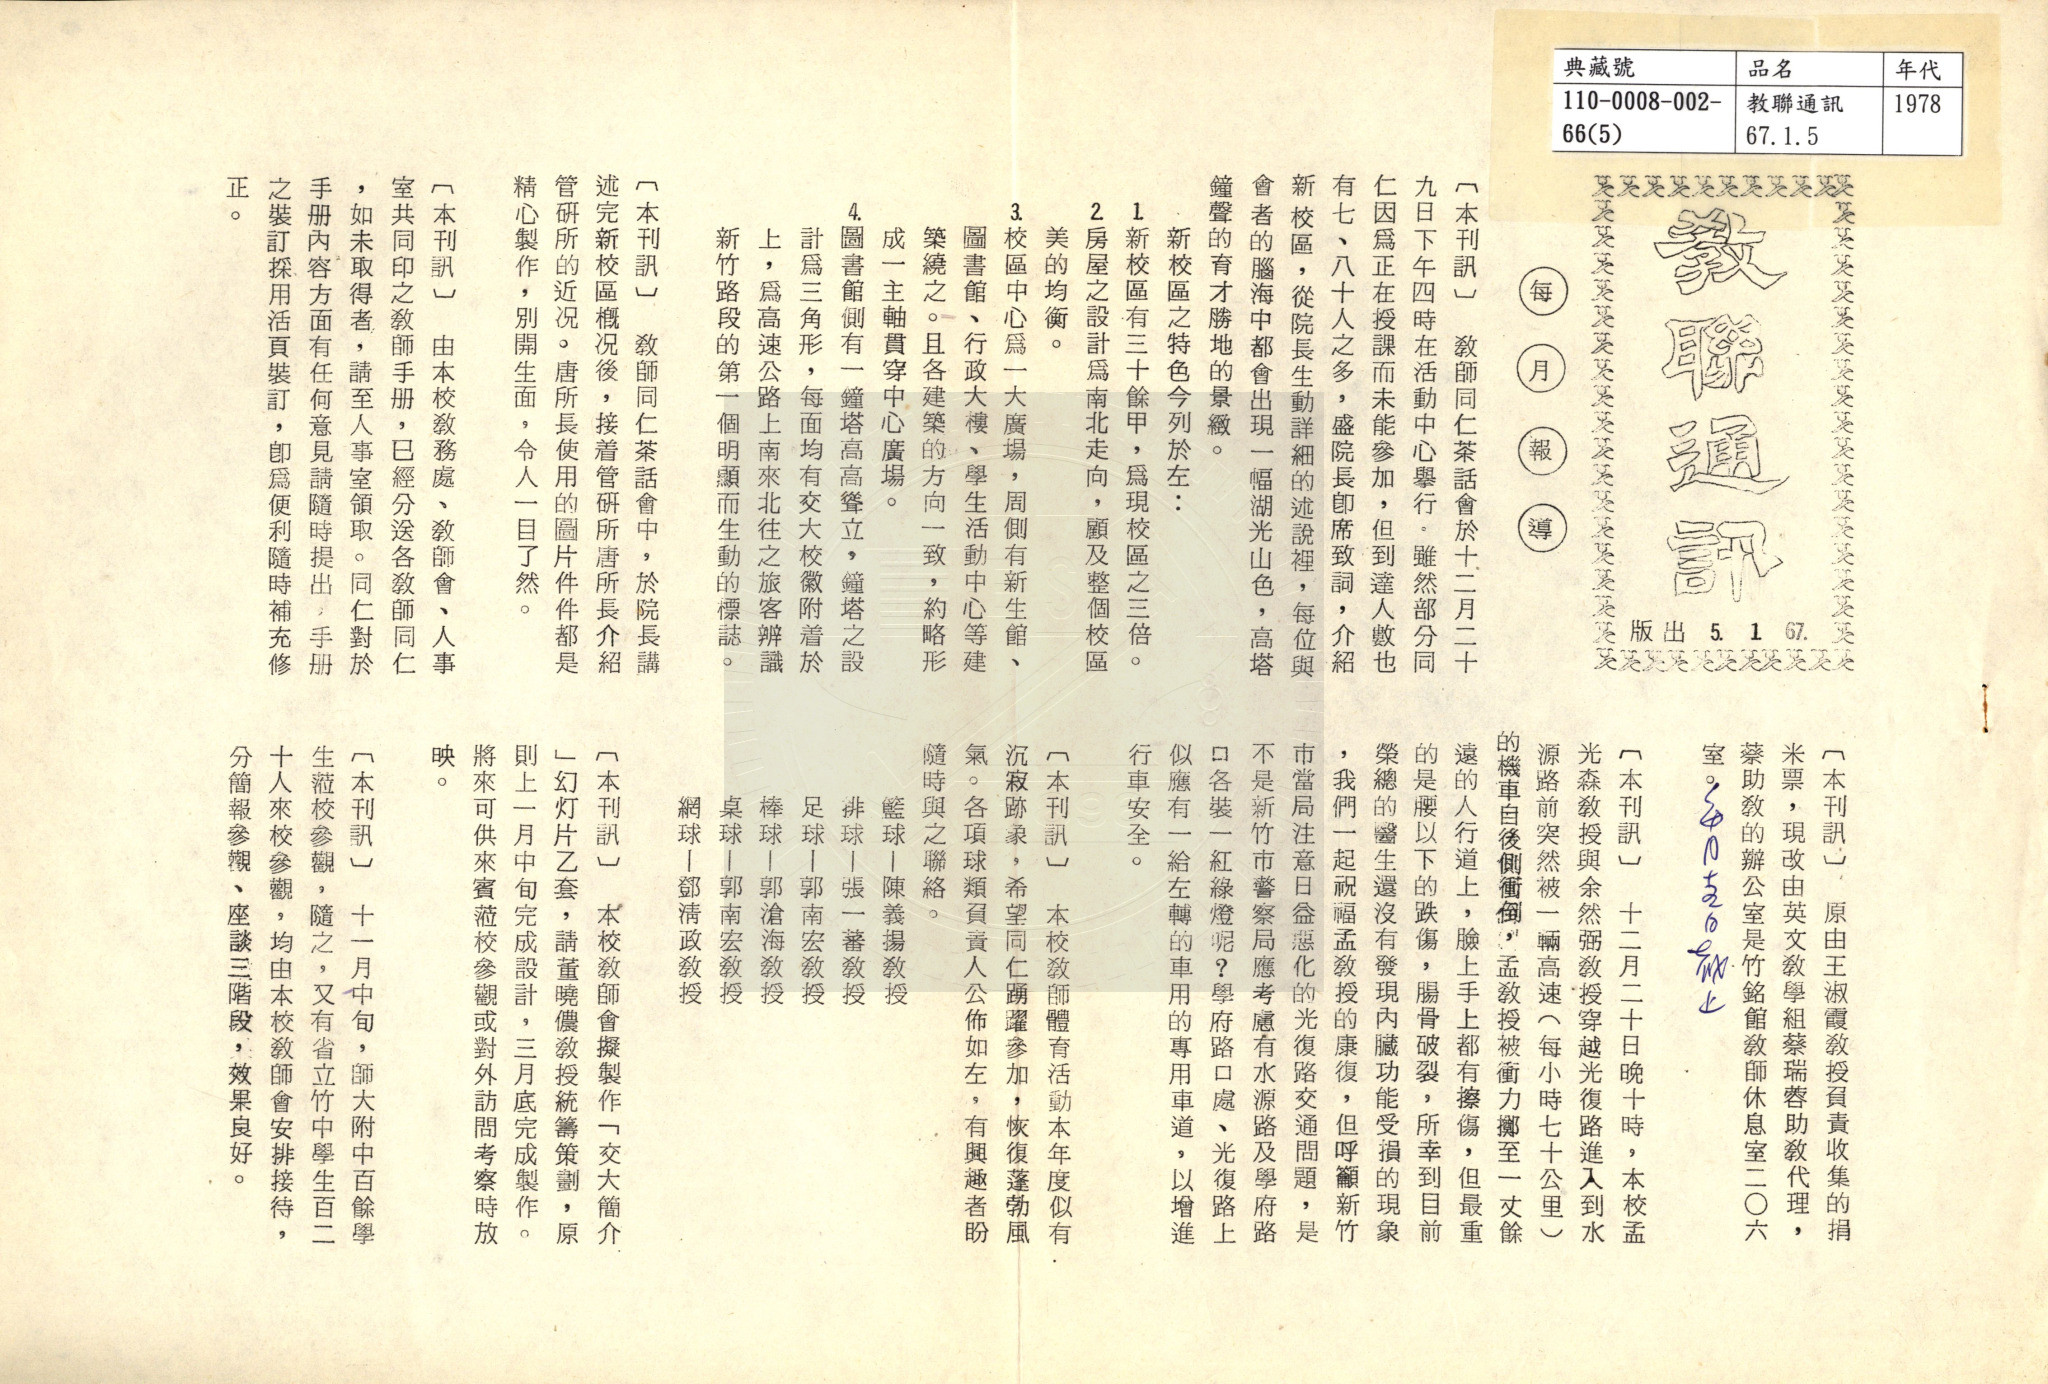 典藏號 品名 年代
110-0008-002-66(5) 教聯通訊 67.1.5 1978
教聯通訊
67. 1 5. 出版
每月報導
〔本刊訊〕 教師同仁茶話會於十二月二十
九日下午四時在活動中心舉行。雖然部分同
仁因爲正在授課而未能參加,但到達人數也
有七、八十人之多,盛院長卽席致詞,介紹
新校區,從院長生動詳細的述說裡,每位與
會者的腦海中都會出現一幅湖光山色,高塔
鐘聲的育才勝地的景緻。
新校區之特色今列於左:
1. 新校區有三十餘甲,爲現校區之三倍。
2. 房屋之設計爲南北走向,顧及整個校區
美的均衡。
3. 校區中心爲一大廣場,周側有新生館、
圖書館、行政大樓、學生活動中心等建
築繞之。且各建築的方向一致,約略形
成一主軸貫穿中心廣場。
4. 圖書館側有一鐘塔高高聳立,鐘塔之設
計爲三角形,每面均有交大校徽附着於
上,爲高速公路上南來北往之旅客辨識
新竹路段的第一個明顯而生動的標誌。
〔本刊訊〕 教師同仁茶話會中,於院長講
述完新校區槪況後,接着管硏所唐所長介紹
管硏所的近况。唐所長使用的圖片件件都是
精心製作,別開生面,令人一目了然。
〔本刊訊〕 由本校教務處、教師會、人事
室共同印之教師手册,已經分送各教師同仁
,如未取得者,請至人事室領取。同仁對於
手册內容方面有任何意見請隨時提出,手册
之裝訂採用活頁裝訂,卽爲便利隨時補充修
正。
〔本刊訊〕 原由王淑霞教授負責收集的捐
米票,現改由英文教學組蔡瑞蓉助教代理,
蔡助教的辦公室是竹銘館教師休息室二〇六
室。
〔本刊訊〕 十二月二十日晚十時,本校孟
光森教授與余然弼教授穿越光復路進入到水
源路前突然被一輛高速(每小時七十公里)
的機車自後側衝倒,孟教授被衝力擲至一丈餘
遠的人行道上,臉上手上都有擦傷,但最重
的是腰以下的跌傷,腸骨破裂,所幸到目前
榮總的醫生還沒有發現內臟功能受損的現象
,我們一起祝福孟教授的康復,但呼籲新竹
市當局注意日益惡化的光復路交通問題,是
不是新竹市警察局應考慮有水源路及學府路
口各裝一紅綠燈呢?學府路口處、光復路上
似應有一給左轉的車用的專用車道,以增進
行車安全。
〔本刊訊〕 本校教師體育活動本年度似有
沉寂跡象,希望同仁踴躍參加,恢復蓬勃風
氣。各項球類負責人公佈如左,有興趣者盼
隨時與之聯絡。
籃球—陳義揚教授
排球—張一蕃教授
足球—郭南宏教授
棒球—郭滄海教授
桌球—郭南宏教授
網球—鄧淸政教授
〔本刊訊〕 本校教師會擬製作「交大簡介
」幻灯片乙套,請董曉儂教授統籌策劃,原
則上一月中旬完成設計,三月底完成製作。
將來可供來賓蒞校參觀或對外訪問考察時放
映。
〔本刊訊〕 十一月中旬,師大附中百餘學
生蒞校參觀,隨之,又有省立竹中學生百二
十人來校參觀,均由本校教師會安排接待,
分簡報參觀、座談三階段,效果良好。